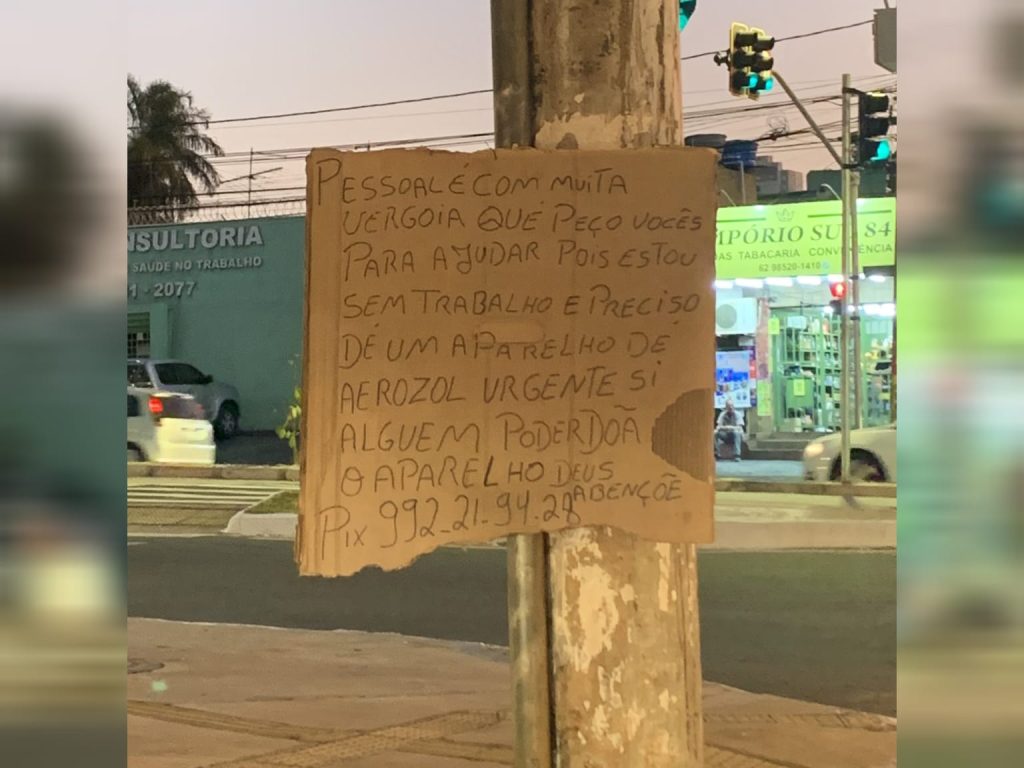 PESSOAL É COM MUITA
VERGOIA QUE PEÇO VOCÊS
PARA AJUDAR POIS ESTOU
SEM TRABALHO E PRECISO
DÉ UM APARELHO DÉ
AEROZOL URGENTE SI
ALGUEM PODER DOÃ
O APARELHO DEUS
ABENÇÕE
PIX 992_21_94_28
NSULTORIA
SAÚDE NO TRABALHO
1 - 2077
MPÓRIO SUL 84
DAS TABACARIA CONVENIENCIA
62 98520-1410